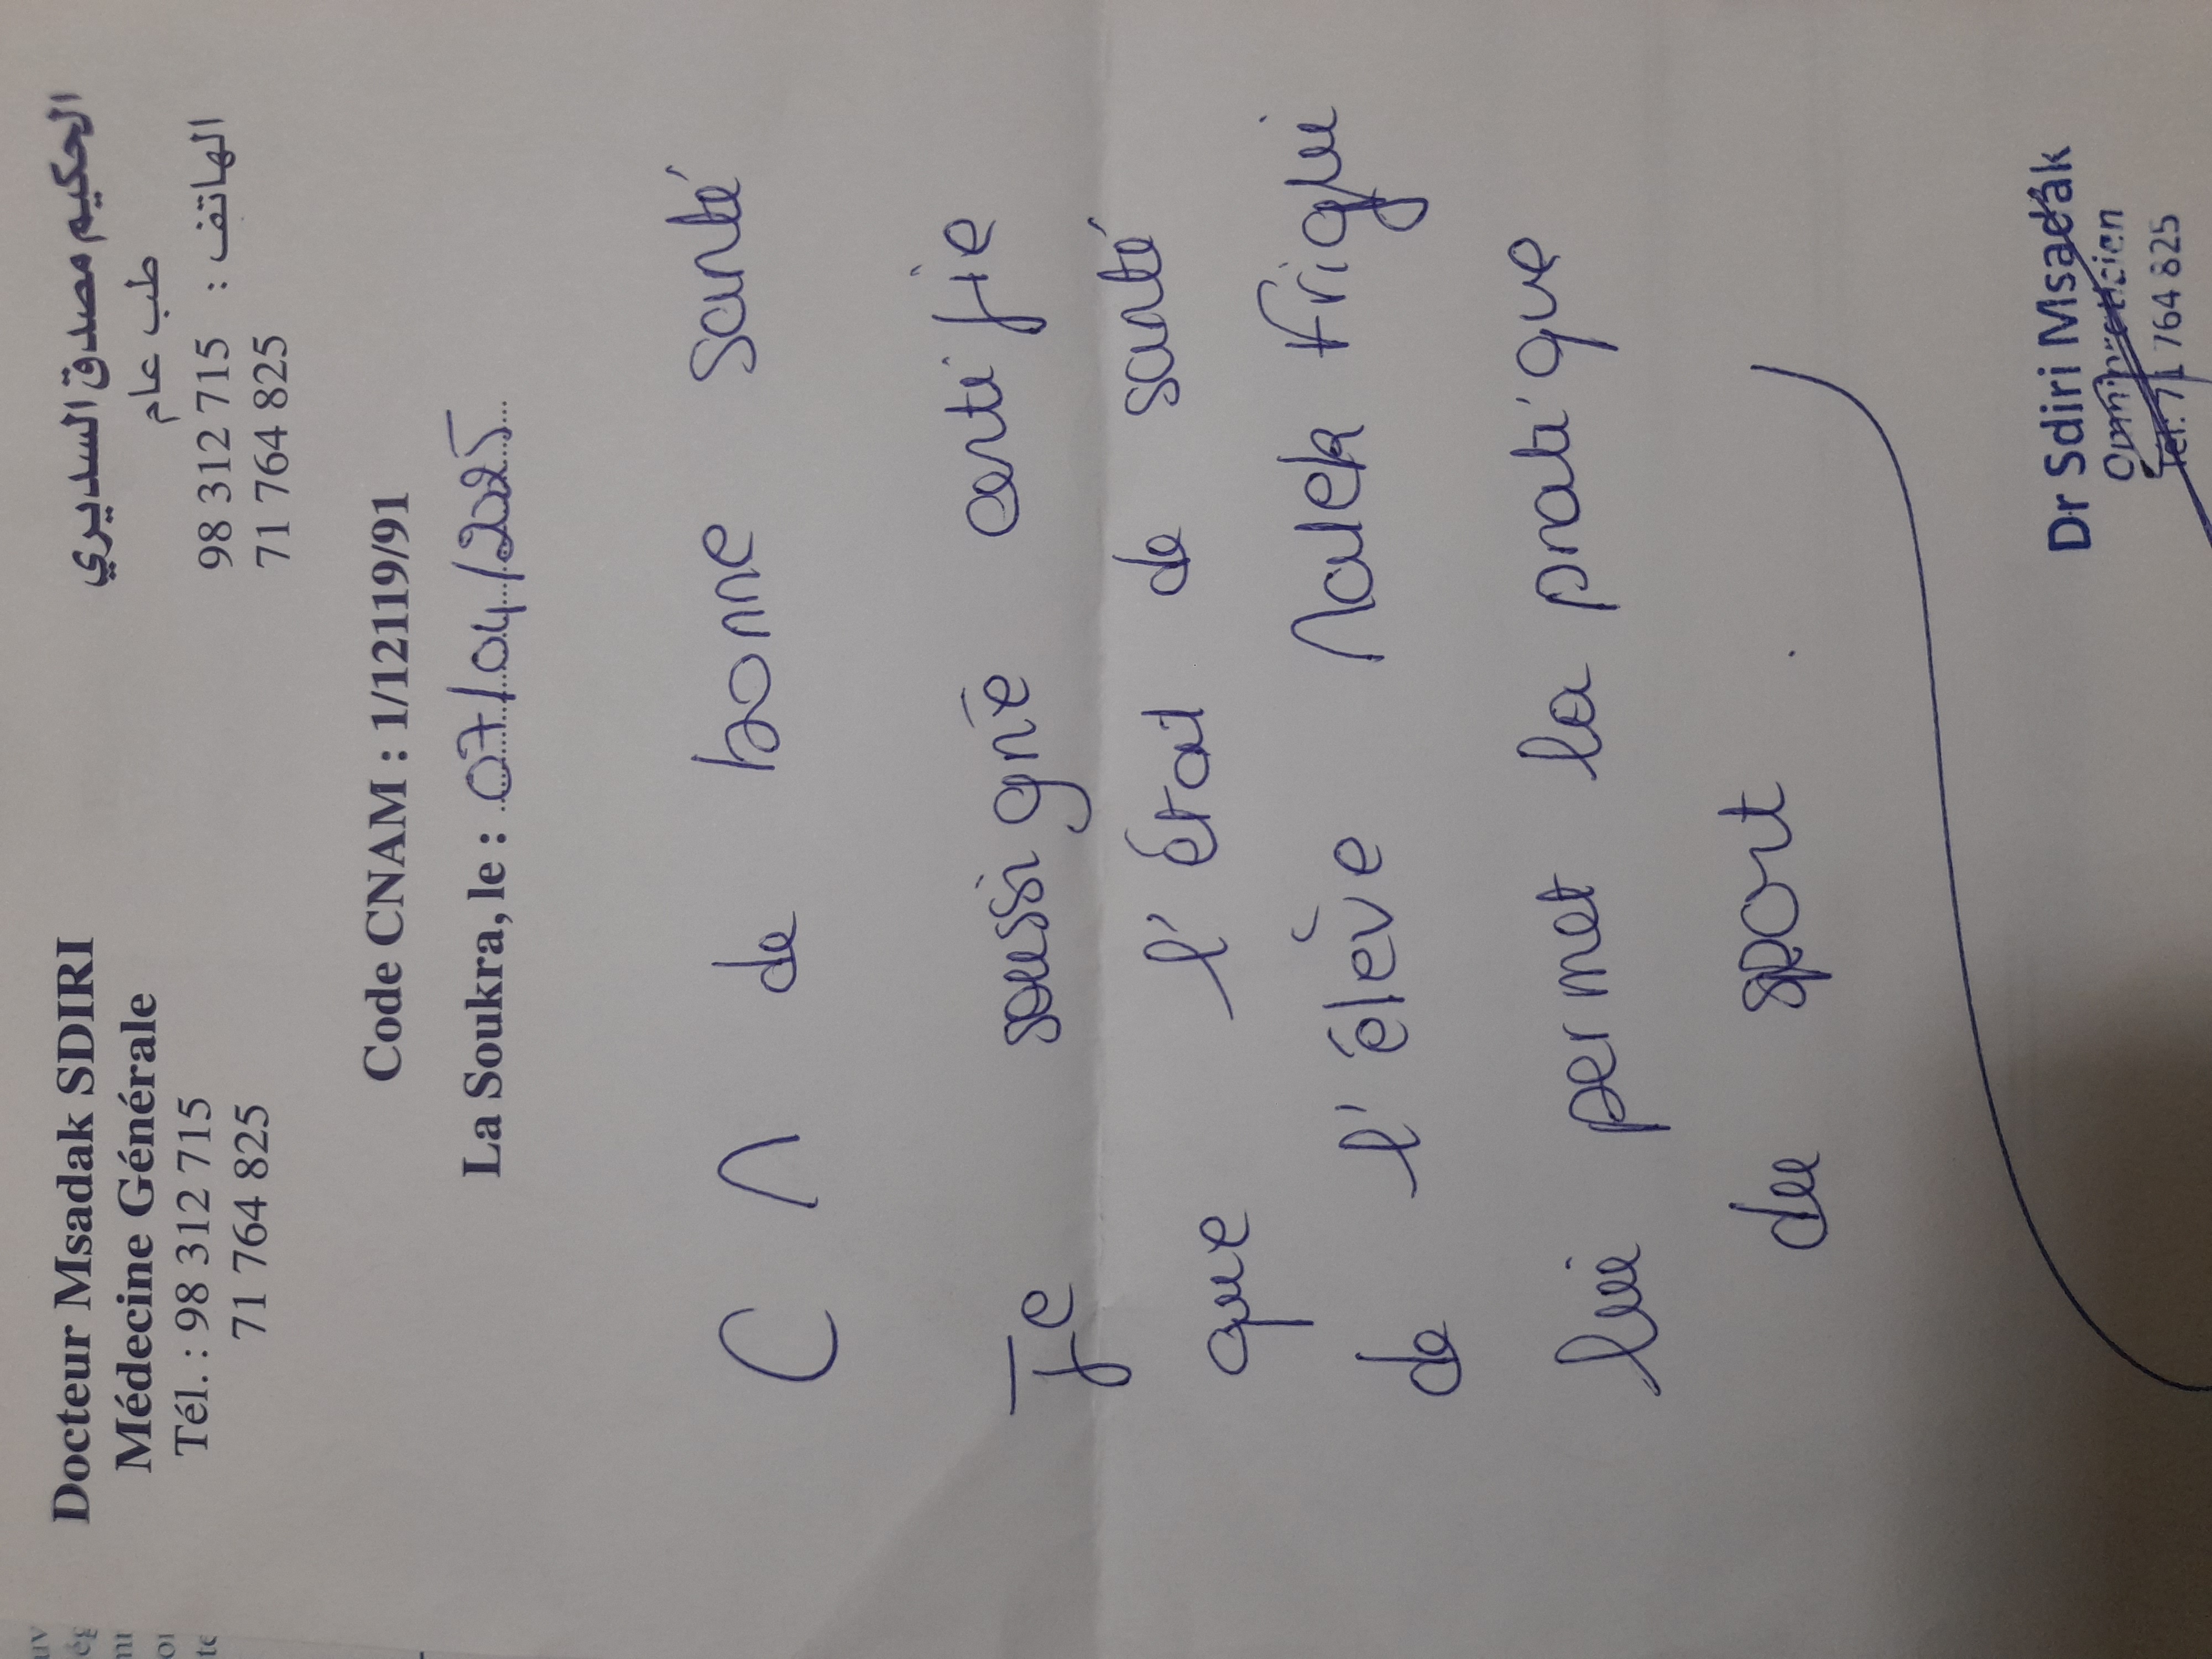 Docteur Msadak SDIRI
Médecine Générale
Tél. : 98 312 715
71 764 825
الحكيم مصدق السديري
طب عام
الهاتف : 98 312 715
71 764 825
Code CNAM : 1/12119/91
La Soukra, le : 07/04/2025
C M de bonne santé
Je soussigné certifie
que l'état de santé
de l'élève Malek Frigui
lui permet la pratique
du sport
Dr Sdiri Msadak
Omnipraticien
Tel: 71 764 825